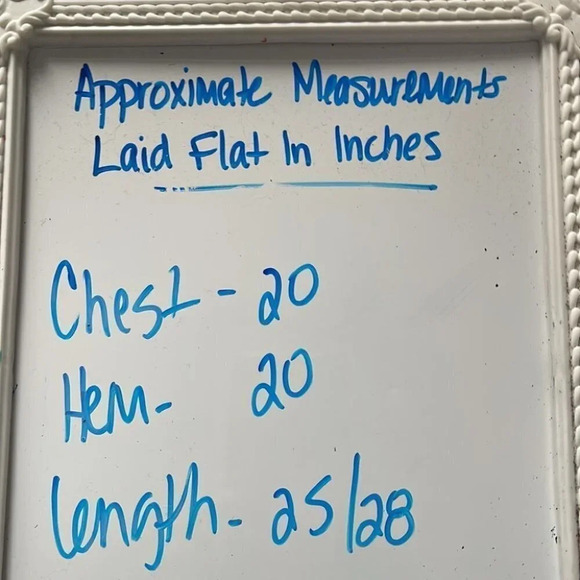 Approximate Measurements
Laid Flat In Inches
Chest - 20
Hem- 20
Length- 25/28